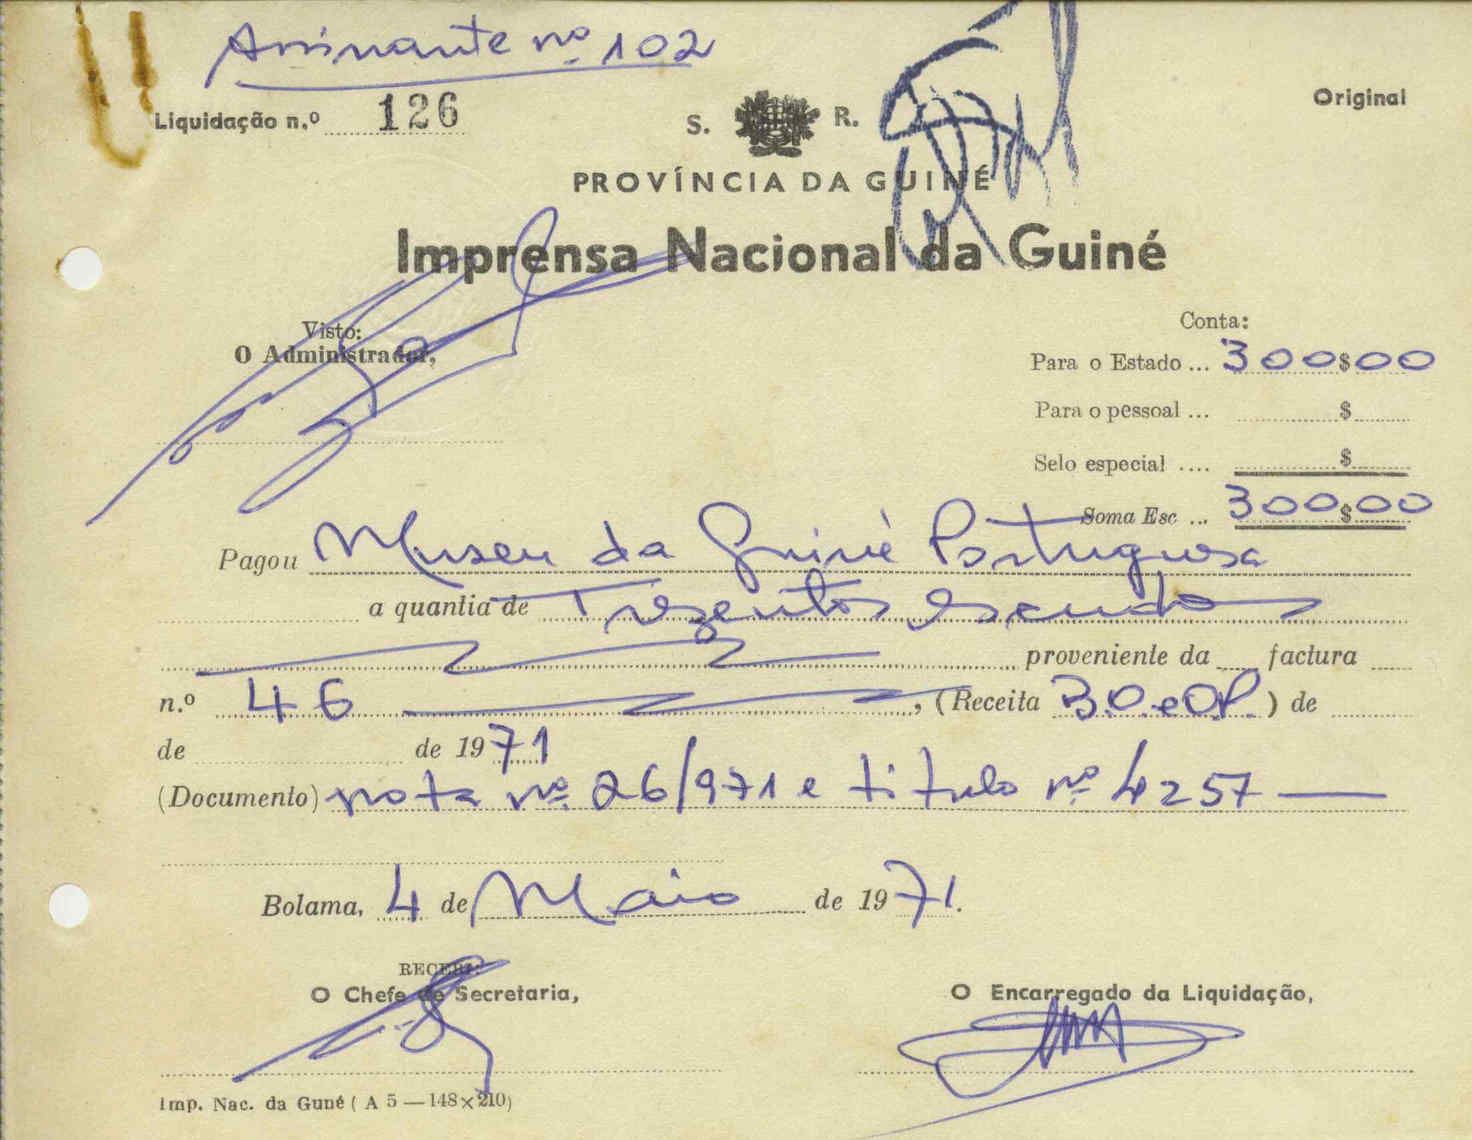 Assinante nº 102
Liquidação n.º 126
S. R.
Original
PROVÍNCIA DA GUINÉ
Imprensa Nacional da Guiné
Visto:
O Administrador,
Conta:
Para o Estado ... 300$00
Para o pessoal ... $
Selo especial .... $
Soma Esc ... 300$00
Pagou Museu da Guiné Portuguesa
a quantia de Trezentos escudos
proveniente da factura
n.º 46, (Receita B.O. e O.P.) de
de de 1971
(Documento) nota nº 26/971 e titulo nº 4257
Bolama, 4 de Maio de 1971.
RECEBI:
O Chefe de Secretaria,
O Encarregado da Liquidação,
Imp. Nac. da Guné ( A 5 — 148×210)